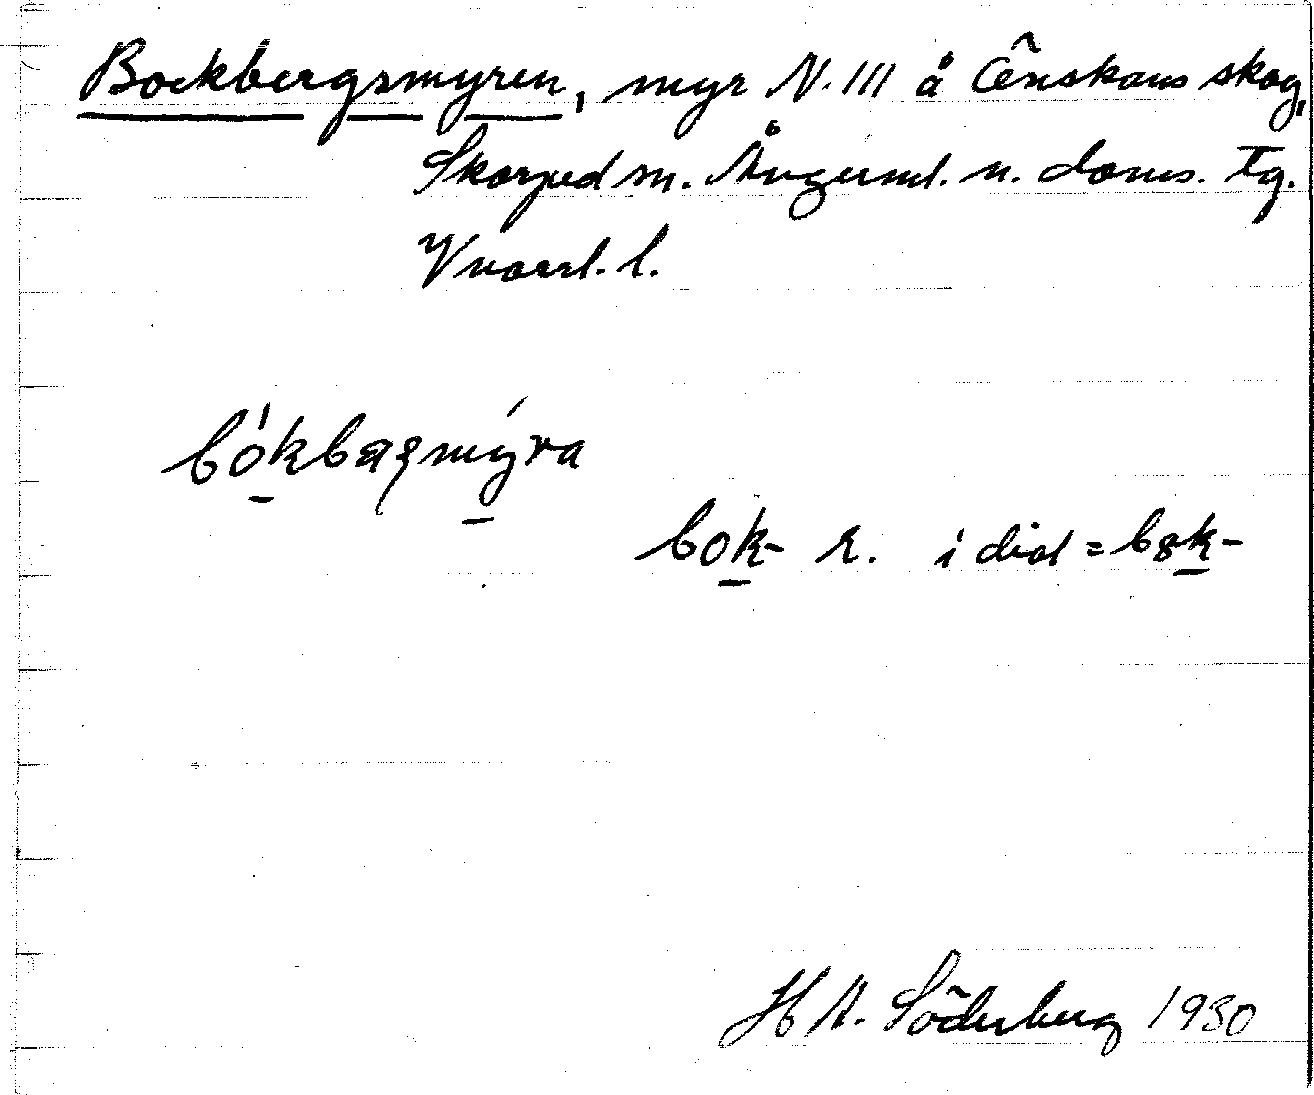 Bockbergsmyren, myr N. III å Önskans skog,
Skorped sn. Ångerml. n. doms. Tg.
Vnorrl. l.
bókbaꞬsmýra
bok- r. i dial = bɞk-
H A. Söderberg 1930